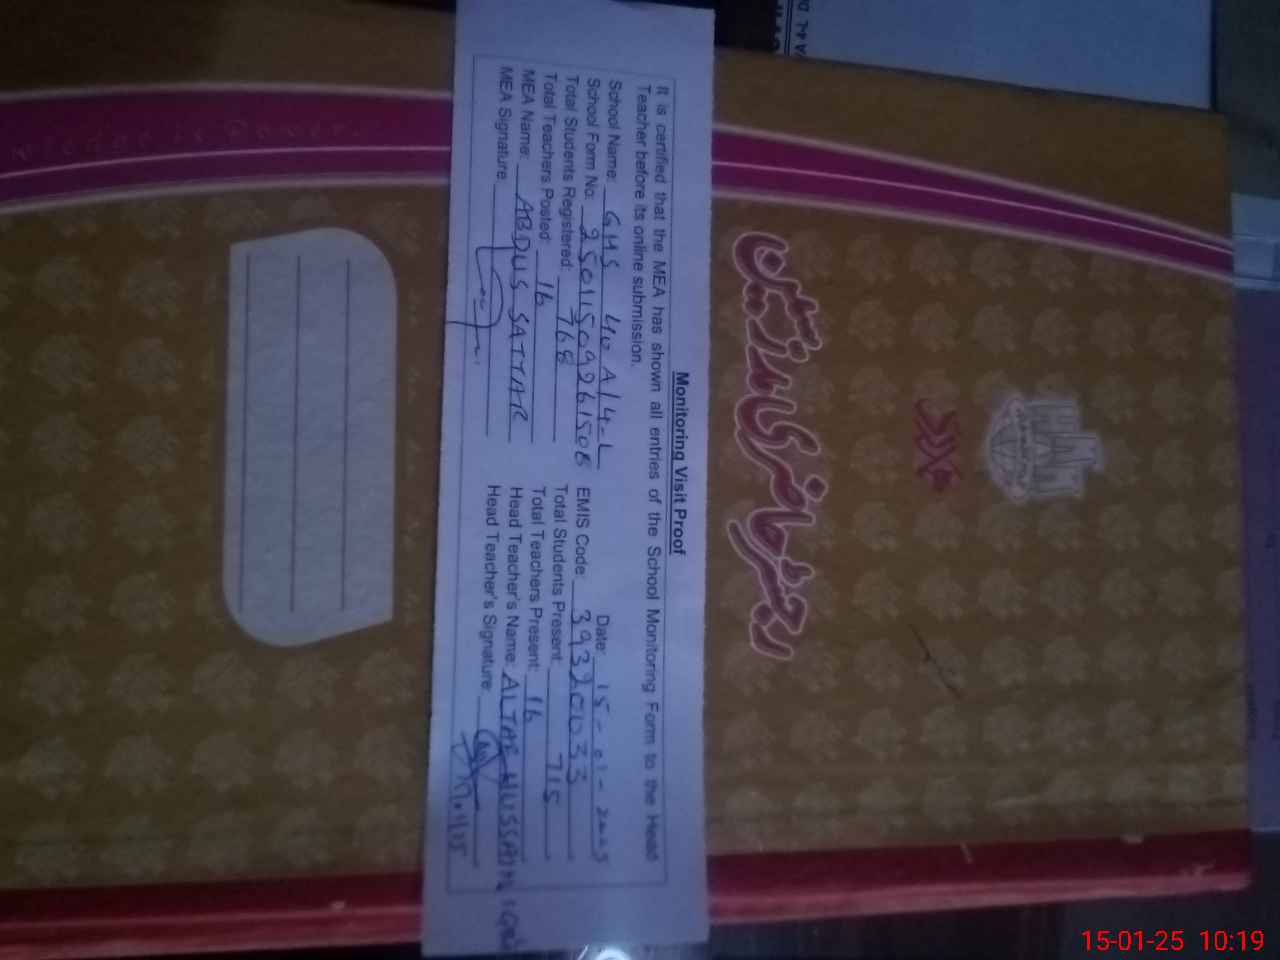 Monitoring Visit Proof
It is certified that the MEA has shown all entries of the School Monitoring Form to the Head
Teacher before its online submission.
Date: 15-01-2025
School Name: GHS 40 A/4-L
School Form No: EMIS Code: 39320033
Total Students Registered: 768 Total Students Present: 715
Total Teachers Posted: 16 Total Teachers Present: 16
MEA Name: ABDUS SATTAR Head Teacher's Name: ALTAF HUSSAIN
MEA Signature: Head Teacher's Signature:
رجسٹر حاضری مدرسین
15-01-25 10:19